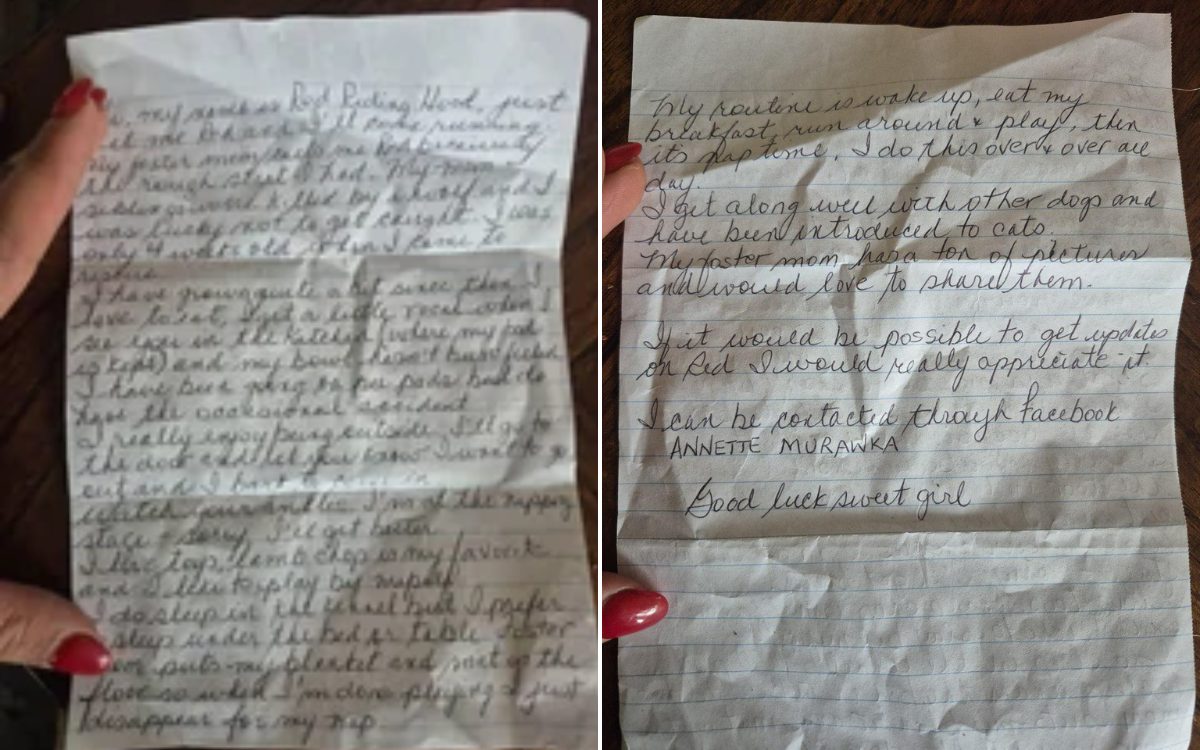 my name is Red Riding Hood, just
call me Red and I'll come running.
My foster mom calls me Red because
the rough start I had. My mom
siblings and I and I
was lucky not to get caught. I was
only 4 weeks old when I came to
rescue.
I have grown quite a bit since then. I
love to eat, I get a little vocal when I
see in the kitchen (where my food
is kept) and my bowl hasn't been filled
I have been going on pee pads but do
have the occasional accident
I really enjoy being outside, I'll go to
the door and let you know I want to go
out and I bark to
I'm at the nipping
stage - Sorry, I'll get better.
I like toys, lamb chop is my favorite
and I like to play by myself
I do sleep in the kennel but I prefer
sleep under the bed or table. Foster
mom puts my blanket and on the
floor so when I'm done playing I just
disappear for my nap
My routine is wake up, eat my
breakfast, run around & play, then
its nap time. I do this over & over all
day.
I get along well with other dogs and
have been introduced to cats.
My foster mom has a ton of pictures
and would love to share them.
If it would be possible to get updates
on Red I would really appriciate it.
I can be contacted through Facebook
ANNETTE MURAWKA
Good luck sweet girl